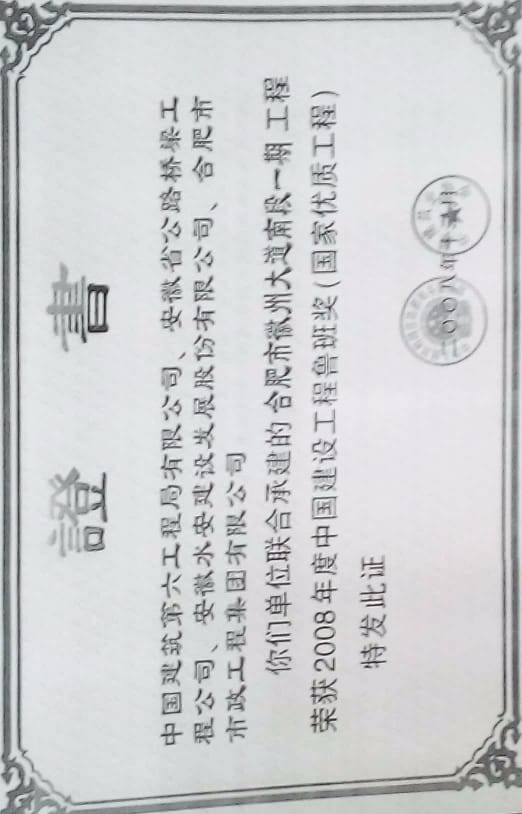 證書
中国建筑第六工程局有限公司、安徽省公路桥梁工
程公司、安徽水安建设发展股份有限公司、合肥市
市政工程集团有限公司
你们单位联合承建的 合肥市徽州大道南段一期 工程
荣获2008年度中国建设工程鲁班奖(国家优质工程)
特发此证
二〇〇八年十